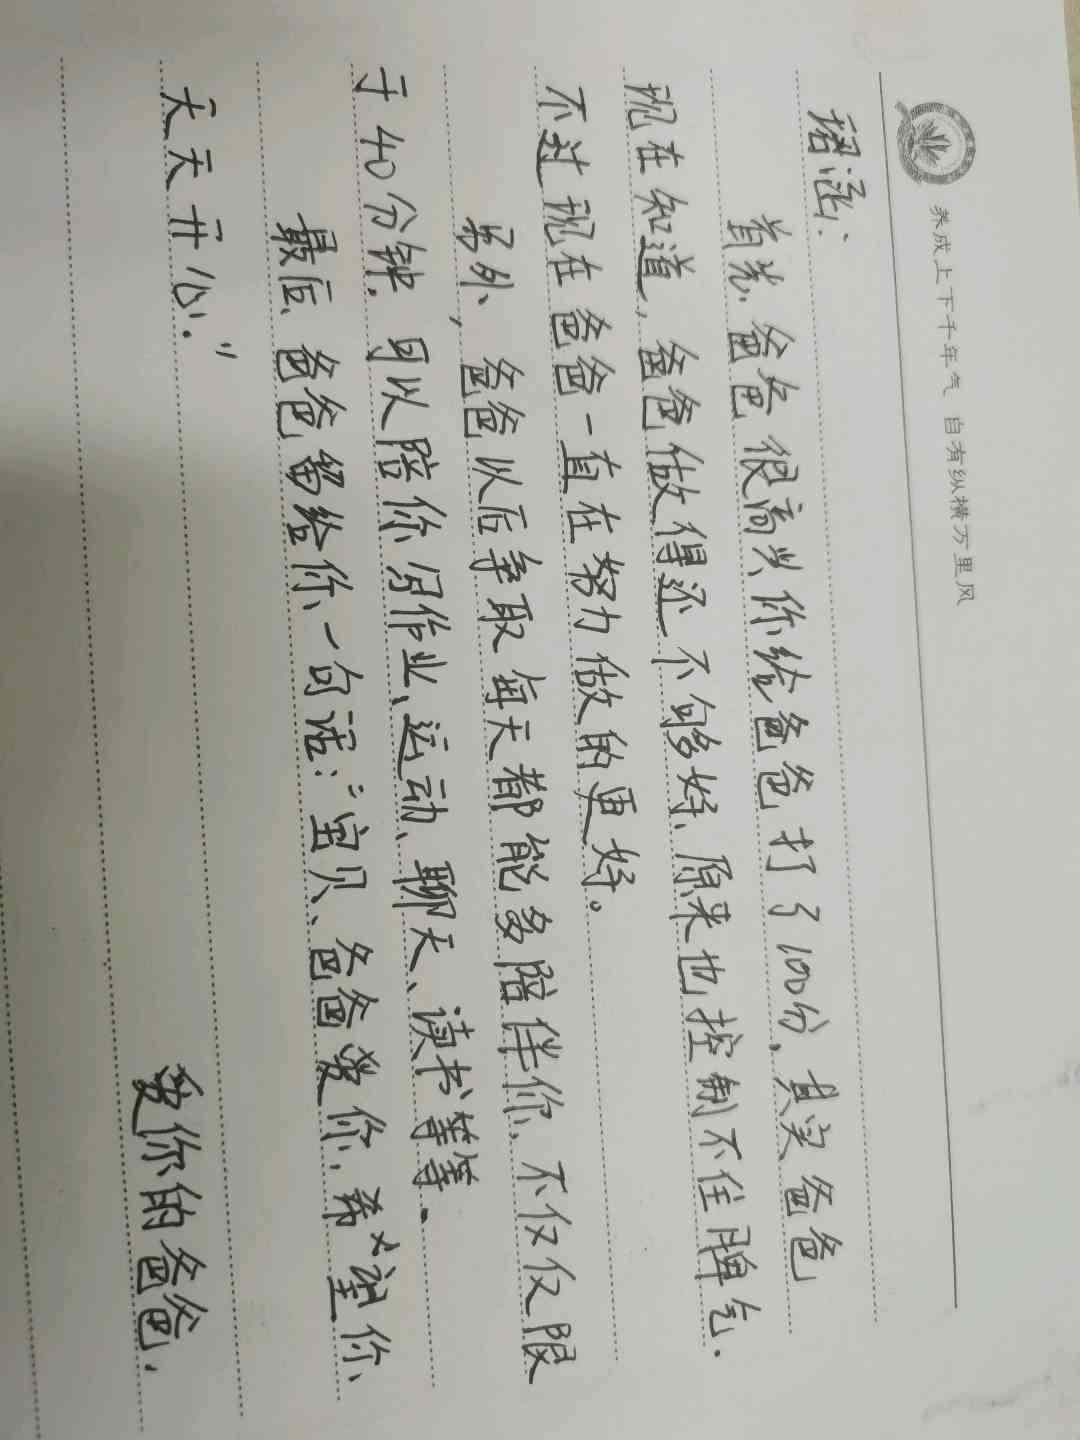 养成上下千年气 自有纵横万里风
珺涵:
首先、爸爸很高兴你给爸爸打了100分,其实爸爸
现在知道,爸爸做得还不够好、原来也控制不住脾气.
不过现在爸爸一直在努力做的更好。
另外,爸爸以后争取每天都能多陪伴你、不仅仅限
于40分钟.可以陪你写作业、运动、聊天、读书等等.
最后、爸爸留给你一句话:“宝贝、爸爸爱你,希望你
天天开心.”
爱你的爸爸.